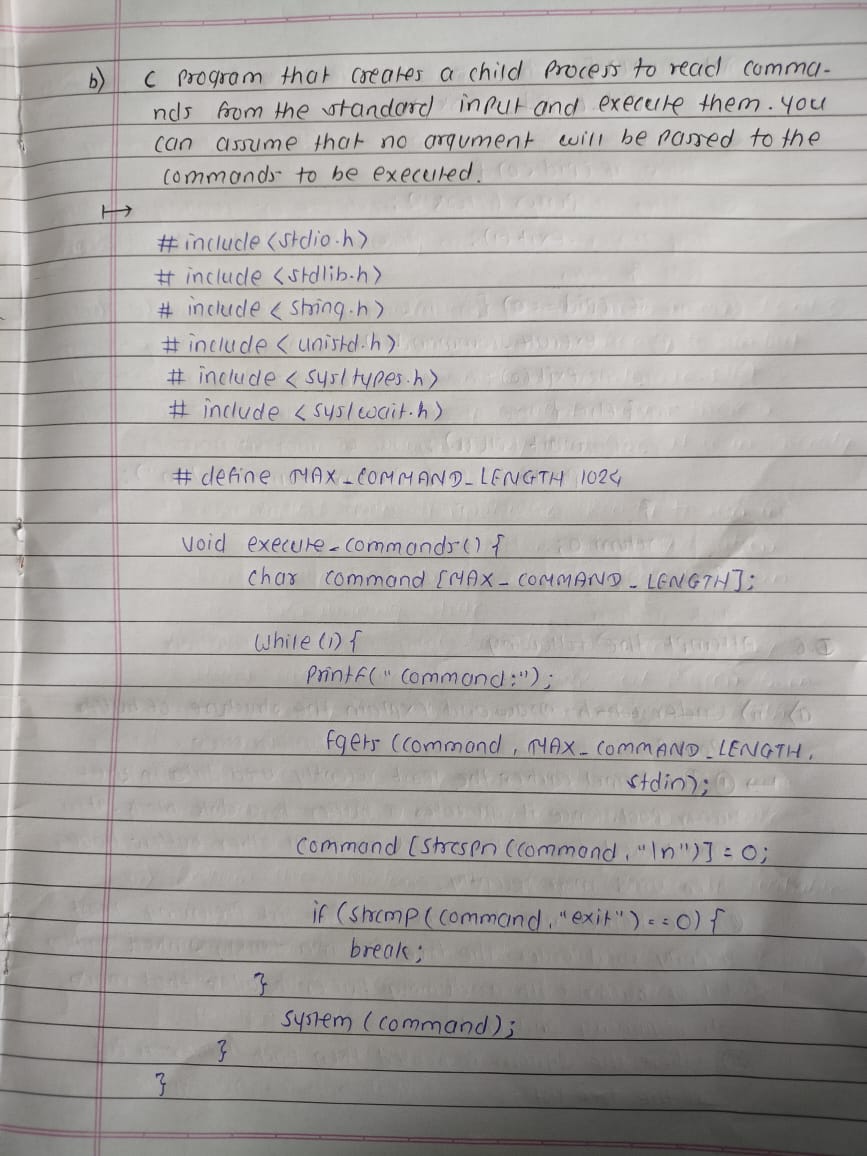 b) C program that creates a child process to read comma-
nds from the standard input and execute them. you
can assume that no argument will be passed to the
commands to be executed.
↦
# include <stdio.h>
# include <stdlib.h>
# include <string.h>
# include <unistd.h>
# include <sys/types.h>
# include <sys/wait.h>
# define MAX_COMMAND_LENGTH 1024
void execute_commands() {
char command [MAX_COMMAND_LENGTH];
while (1) {
printf(" command:");
fgets (command, MAX_COMMAND_LENGTH,
stdin);
command [strcspn (command, "\n")] = 0;
if (strcmp (command, "exit") == 0) {
break;
}
system (command);
}
}